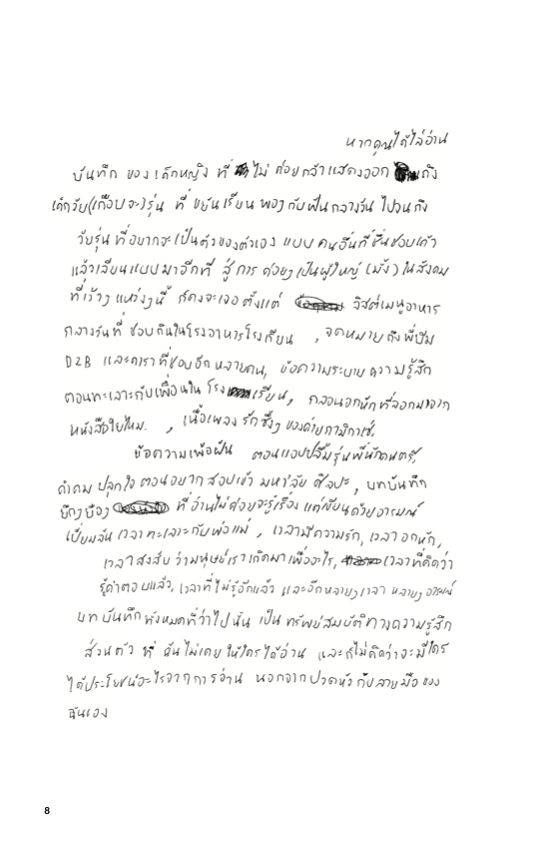 หากคุณได้ไล่อ่าน
บันทึก ของ เด็กหญิง ที่ ไม่ ค่อยกล้าแสดงออก ถึง
เด็กวัย(เกือบจะ)รุ่น ที่ ขยันเรียน พอๆ กับฝันกลางวัน ไปจนถึง
วัยรุ่นที่อยากจะเป็นตัวของตัวเอง แบบ คนอื่นที่ชื่นชอบแล้ว
แล้วเลียนแบบมาอีกที สู่ การ ค่อยๆ เป็นผู้ใหญ่ (มั้ง) ในสังคม
ที่เว้าๆ แหว่งๆนี้ ก็คงจะเจอ ตั้งแต่ ลิสต์เมนูอาหาร
กลางวันที่ ชอบกินในโรงอาหารโรงเรียน , จดหมายถึงพี่บีม
D2B และดาราที่ชอบอีก หลายคน, ข้อความระบายความรู้สึก
ตอนทะเลาะกับเพื่อนใน โรงเรียน, กลอนอกหักที่ลอกมาจาก
หนังสือใยไหม. , เนื้อเพลง รักซึ้งๆ ของค่ายกามิกาเซ่.
ข้อความเพ้อฝัน ตอนแอบปลื้มรุ่นพี่นักดนตรี
คำคม ปลุกใจ ตอนอยากสอบเข้า มหา'ลัย ศิลปะ, บทบันทึก
ยึกๆยือๆ ที่อ่านไม่ค่อยจะรู้เรื่อง แต่เขียนด้วยอารมณ์
เปี่ยมล้น เวลาทะเลาะกับพ่อแม่ , เวลามีความรัก, เวลาอกหัก,
เวลา สงสัย ว่ามนุษย์เราเกิดมาเพื่ออะไร, เวลาที่คิดว่า
รู้คำตอบแล้ว, เวลาที่ไม่รู้อีกแล้ว และอีกหลายๆ เวลา หลายๆ อารมณ์
บทบันทึกทั้งหมดที่ว่าไปนั้น เป็น ทรัพย์สมบัติทางความรู้สึก
ส่วนตัว ที่ ฉันไม่เคย ให้ใครได้อ่าน และก็ไม่คิดว่าจะมีใคร
ได้ประโยชน์อะไรจากการอ่าน นอกจากปวดหัว กับลายมือ ของ
ฉันเอง
8